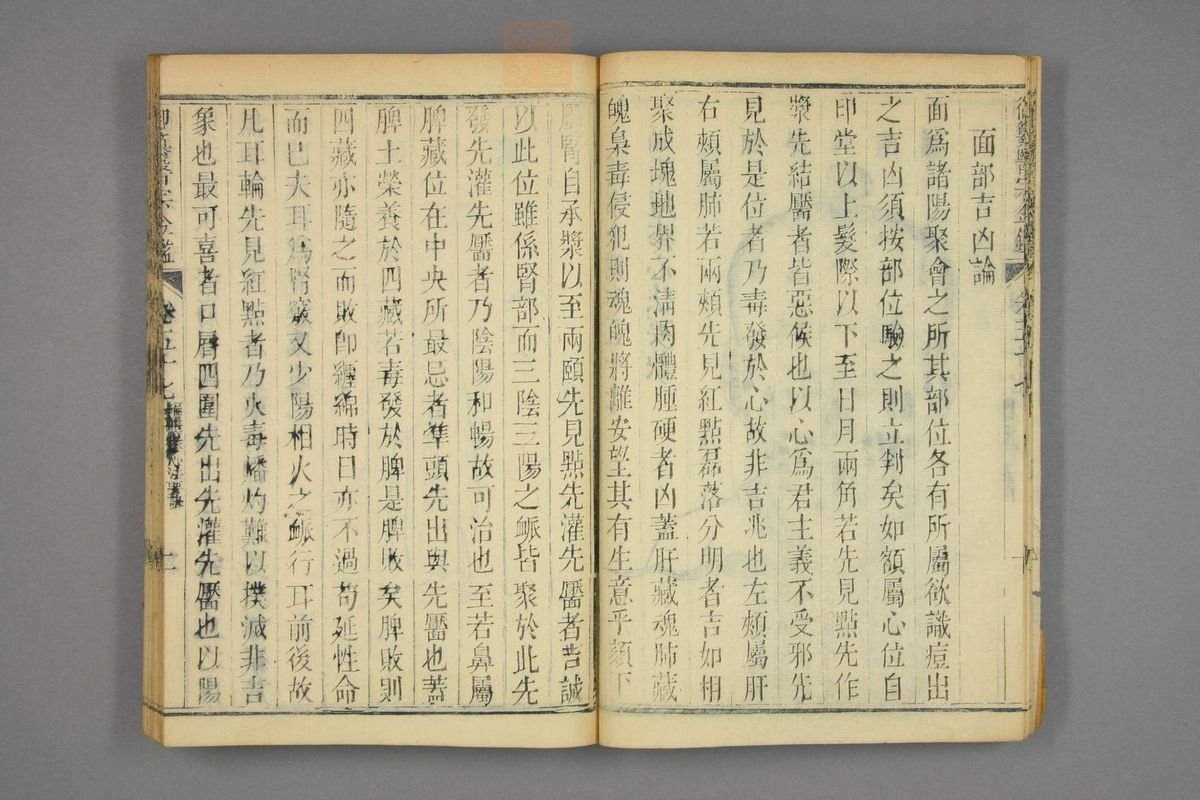 御纂醫宗金鑑
面部吉凶論
面爲諸陽聚會之所其部位各有所屬欲識痘出
之吉凶須按部位驗之則立判矣如額屬心位自
印堂以上髮際以下至日月兩角若先見點先作
漿先結靨者皆惡候也以心爲君主義不受邪先
見於是位者乃毒發於心故非吉兆也左頰屬肝
右頰屬肺若兩頰先見紅點磊落分明者吉如相
聚成塊地界不淸肉體腫硬者凶蓋肝藏魂肺藏
魄梟毒侵犯則魂魄將離安望其有生意乎頦下
屬腎自承漿以至兩頤先見點先灌先靨者吉誠
以此位雖係腎部而三陰三陽之脈皆聚於此先
發先灌先靨者乃陰陽和暢故可治也至若鼻屬
脾藏位在中央所最忌者準頭先出與先靨也蓋
脾土榮養於四藏若毒發於脾是脾敗矣脾敗則
四藏亦隨之而敗卽纏綿時日亦不過苟延性命
而已夫耳爲腎竅又少陽相火之脈行耳前後故
凡耳輪先見紅點者乃火毒燔灼難以撲滅非吉
象也最可喜者口脣四圍先出先灌先靨也以陽
御纂醫宗金鑑 卷五十七